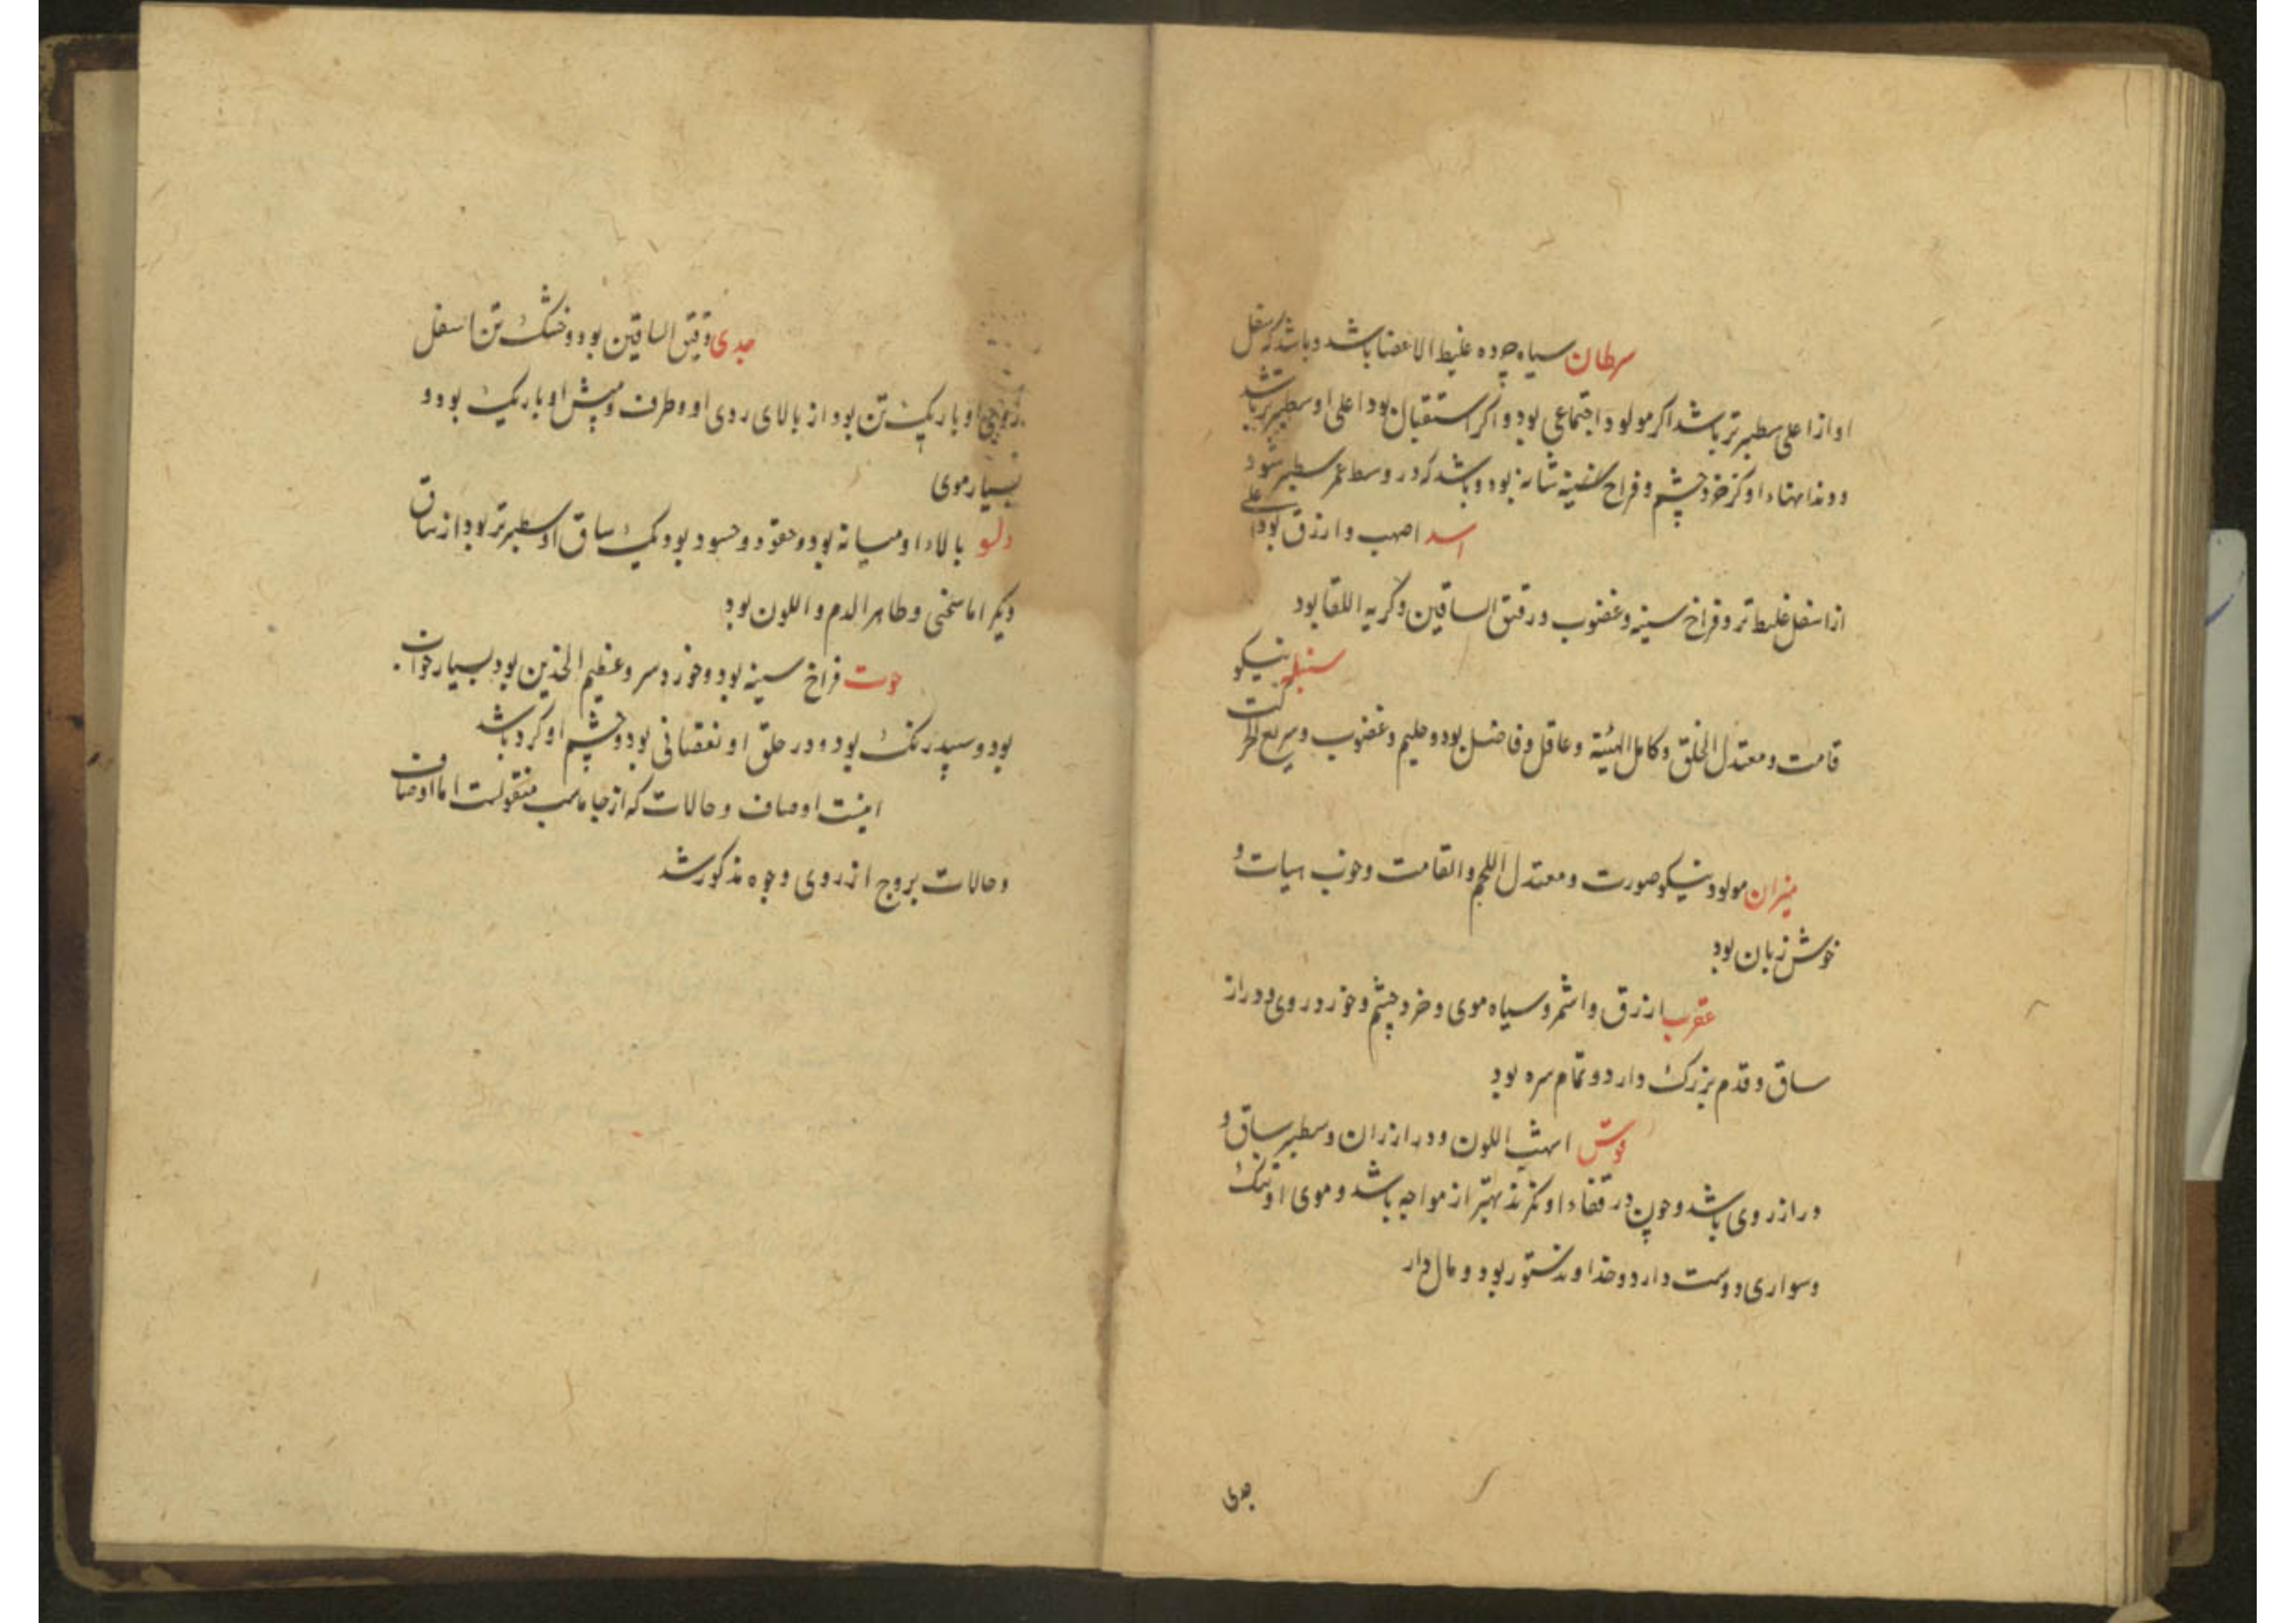 سرطان سیاه چرده غلیظ الاعضا باشد و باشد که سفل
او از اعلی سطبرتر باشد اکر مولود اجتماعی بود و اکر استقبال بود اعلی او سطبرتر باشد
و دندانهاء او کژ خرد چشم و فراخ سینه شانه بود و باشد که در وسط عمر سطبر شود
اسد اصهب و ارزق بود اعلی
از اسفل غلیظ تر و فراخ سینه و غضوب و رقیق الساقین و کریه اللقا بود
سنبله نیکو
قامت و معتدل الخلق و کامل الهیئة و عاقل و فاضل بود و حلیم و غضوب و سریع الحرکت
میزان مولود نیکو صورت و معتدل اللحم و القامت و خوب هیات و
خوش زبان بود
عقرب ارزق و اشقر و سیاه موی و خرد چشم و خورد روی و دراز
ساق و قدم بزرک دارد و تمام سره بود
قوس اللون و دراز ران و سطبر ساق و
دراز روی باشد و چون در قفاء او نکرند بهتر از مواجه باشد و موی او تنک
و سواری دوست دارد و خداوند ستور بود و مال دار
جدی
جدی دقیق الساقین بود و خشک تن اسفل
او باریک تن بود از بالای روی او و طرف ریش او باریک بود و
بسیار موی
دلو بالاء او میانه بود و حقود و حسود بود یک ساق او سطبرتر بود از ساق
دیکر اما سخی و طاهر الدم و اللون بود
حوت فراخ سینه بود و خورد سر و عظیم الخدین بود بسیار
بود و سپید رنک بود و در خلق او نقصانی بود و چشم او کرد باشد
اینست اوصاف و حالات که از جاماسب منقولست اما اوصاف
و حالات بروج از روی وجوه مذکور شد